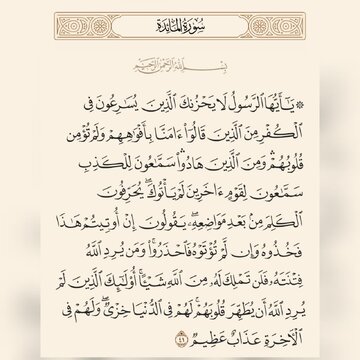 سُورَةُ المَائِدَةِ
بِسْمِ اللَّهِ الرَّحْمَٰنِ الرَّحِيمِ
۞ يَٰٓأَيُّهَا ٱلرَّسُولُ لَا يَحْزُنكَ ٱلَّذِينَ يُسَٰرِعُونَ فِى
ٱلْكُفْرِ مِنَ ٱلَّذِينَ قَالُوٓا۟ ءَامَنَّا بِأَفْوَٰهِهِمْ وَلَمْ تُؤْمِن
قُلُوبُهُمْ ۛ وَمِنَ ٱلَّذِينَ هَادُوا۟ ۛ سَمَّٰعُونَ لِلْكَذِبِ
سَمَّٰعُونَ لِقَوْمٍ ءَاخَرِينَ لَمْ يَأْتُوكَ ۖ يُحَرِّفُونَ
ٱلْكَلِمَ مِنۢ بَعْدِ مَوَاضِعِهِۦ ۖ يَقُولُونَ إِنْ أُوتِيتُمْ هَٰذَا
فَخُذُوهُ وَإِن لَّمْ تُؤْتَوْهُ فَٱحْذَرُوا۟ ۚ وَمَن يُرِدِ ٱللَّهُ
فِتْنَتَهُۥ فَلَن تَمْلِكَ لَهُۥ مِنَ ٱللَّهِ شَيْـًٔا ۚ أُو۟لَٰٓئِكَ ٱلَّذِينَ لَمْ
يُرِدِ ٱللَّهُ أَن يُطَهِّرَ قُلُوبَهُمْ ۚ لَهُمْ فِى ٱلدُّنْيَا خِزْىٌ ۖ وَلَهُمْ فِى
ٱلْءَاخِرَةِ عَذَابٌ عَظِيمٌ ٤١